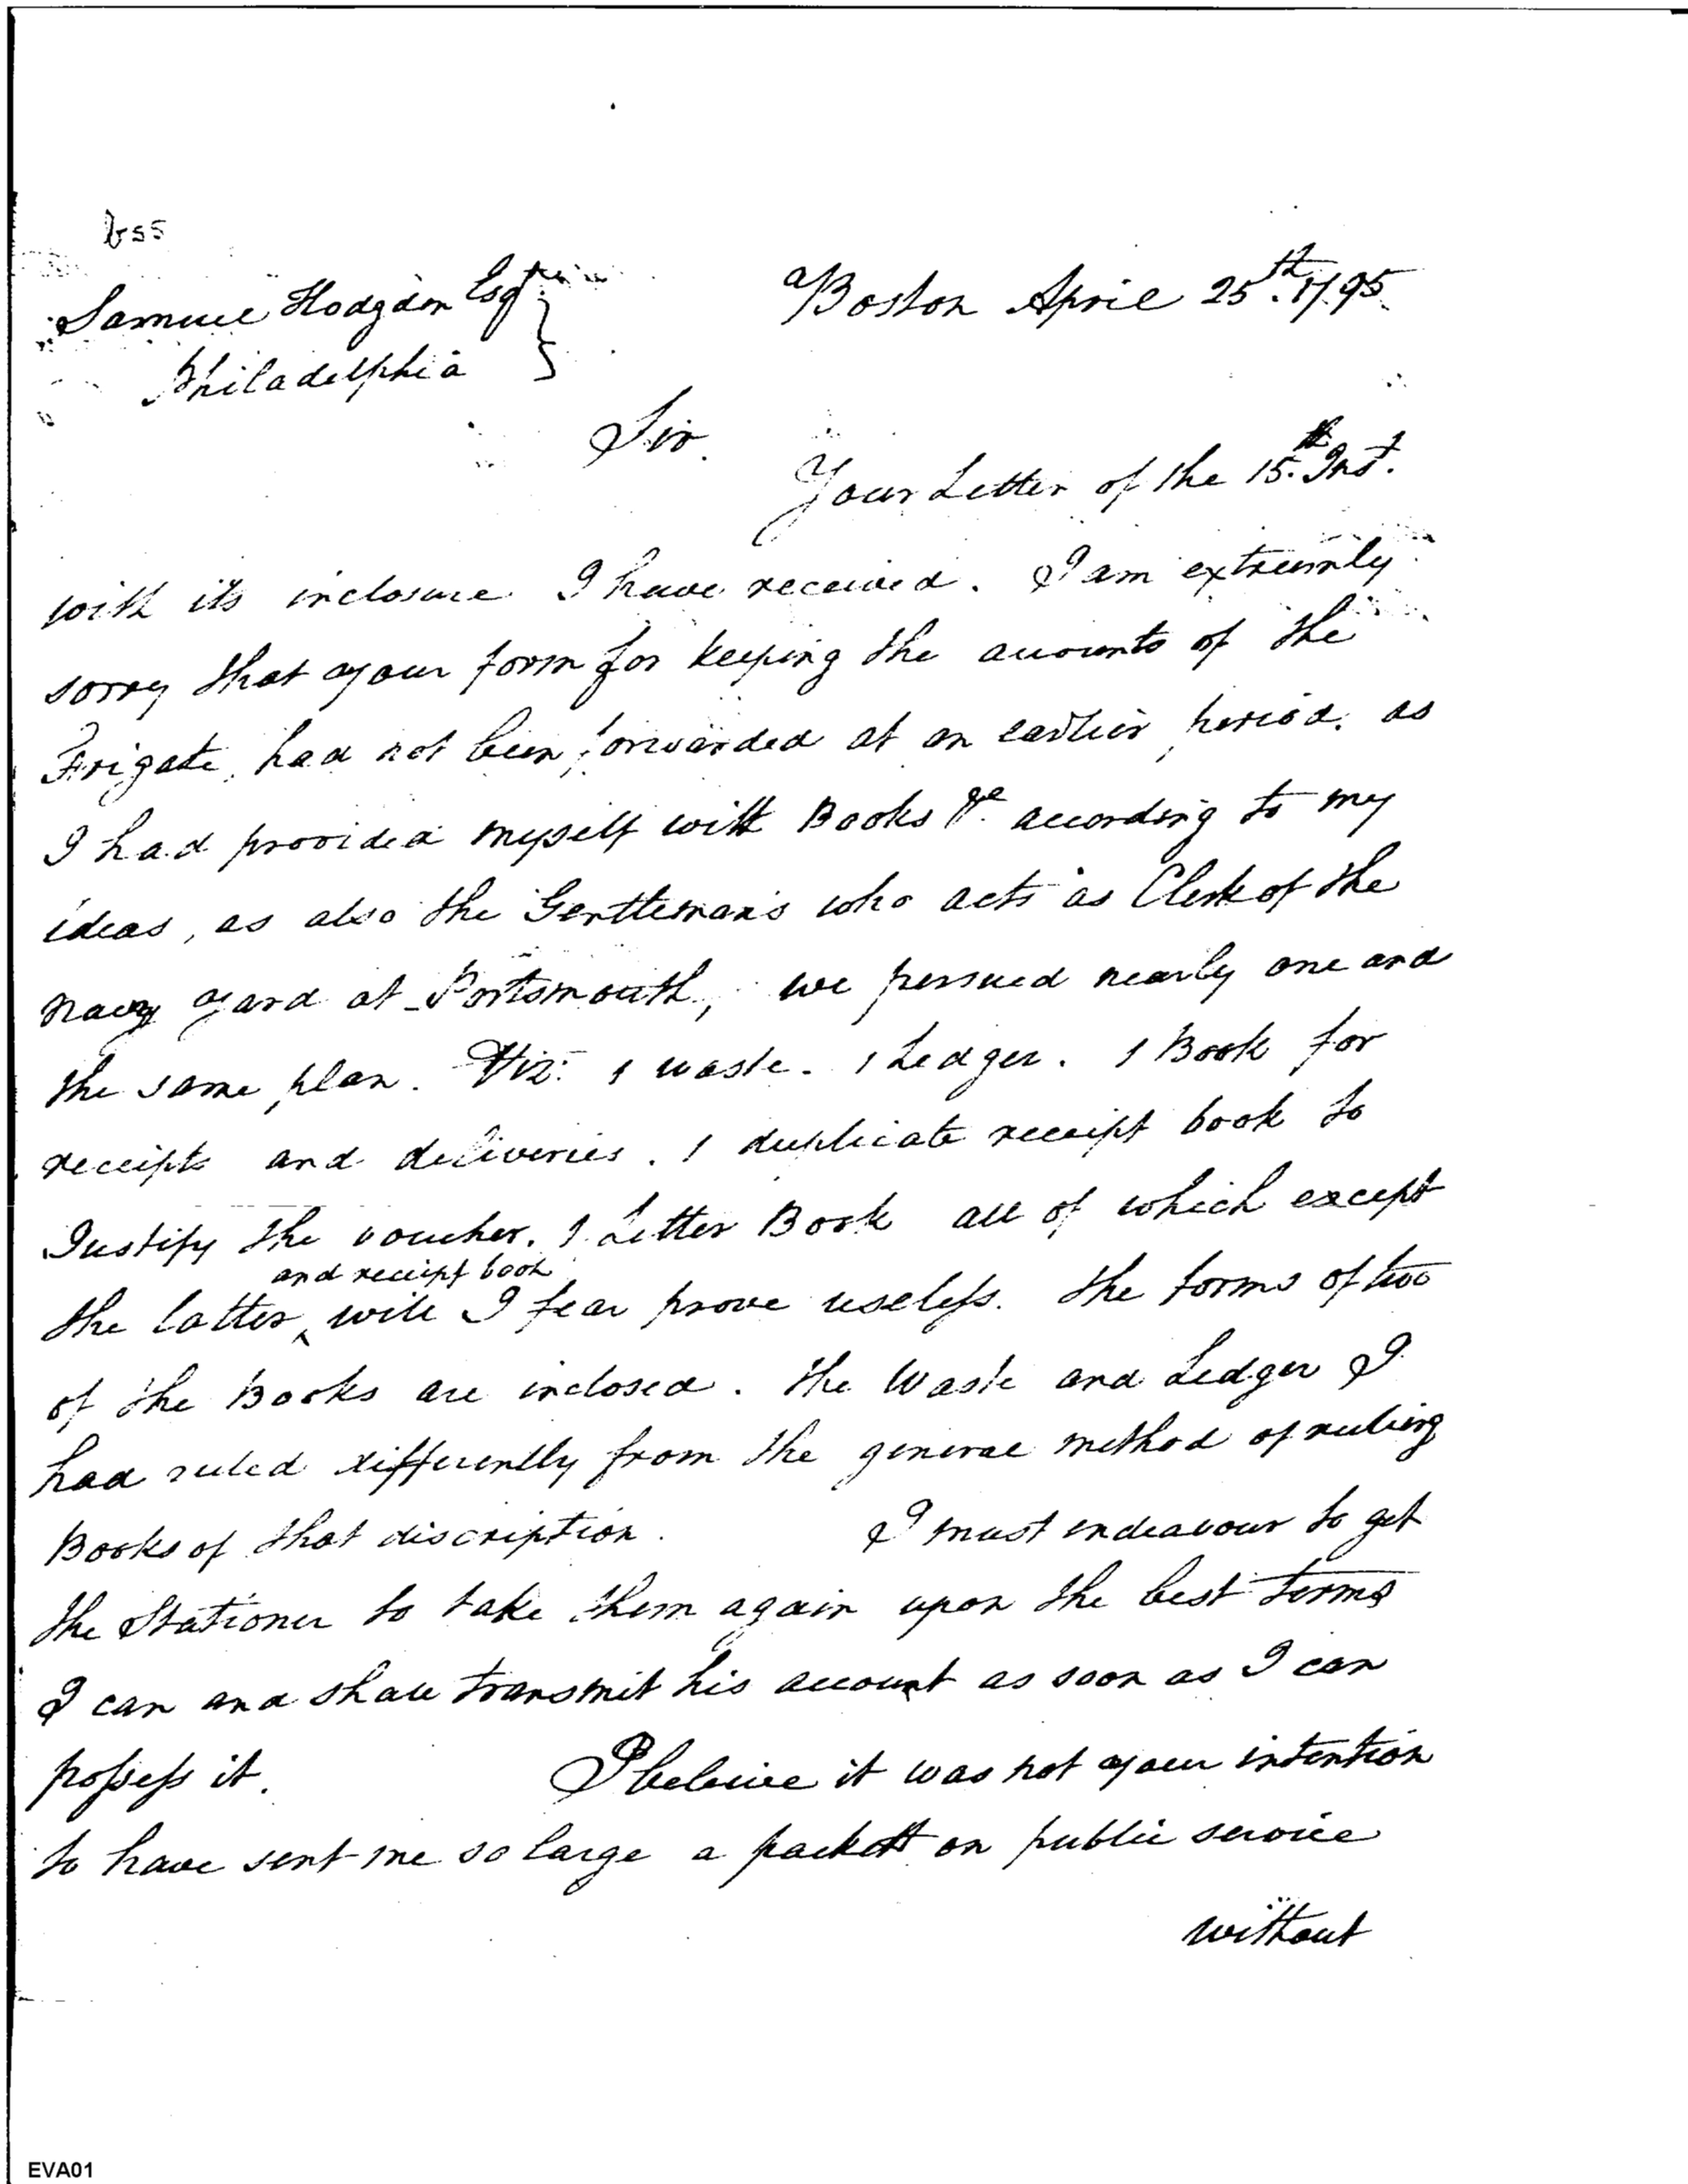 bss
Samuel Hodgdon Esqr.
Philadelphia
Boston April 25.th 1795
Sir.
Your Letter of the 15.th Inst.
with its inclosure I have received. I am extreemly
sorry that your form for keeping the accounts of the
Frigate, had not been forwarded at an earlier period, as
I had provided myself with Books &c according to my
ideas, as also the Gentleman's who acts as Clerk of the
navy yard at Portsmouth, we persued nearly one and
the same plan. Viz: 1 waste. 1 Ledger. 1 Book for
receipts and deliveries. 1 duplicate receipt book to
Justify the voucher. 1 Letter Book all of which except
and receipt book
the latter ‸ will I fear prove useless. the forms of two
of the Books are inclosed. the Waste and Ledger I
had ruled differently from the general method of ruling
Books of that discription. I must endeavour to get
the Stationer to take them again upon the best terms
I can and shall transmit his account as soon as I can
possess it. I beleive it was not your intention
to have sent me so large a packett on public service
without
EVA01